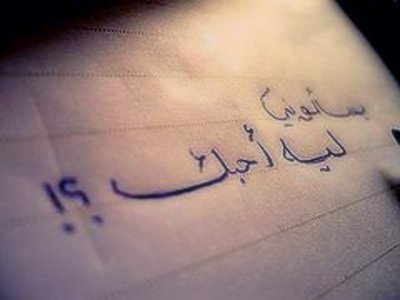 يسألوني
ليه أحبك ؟!